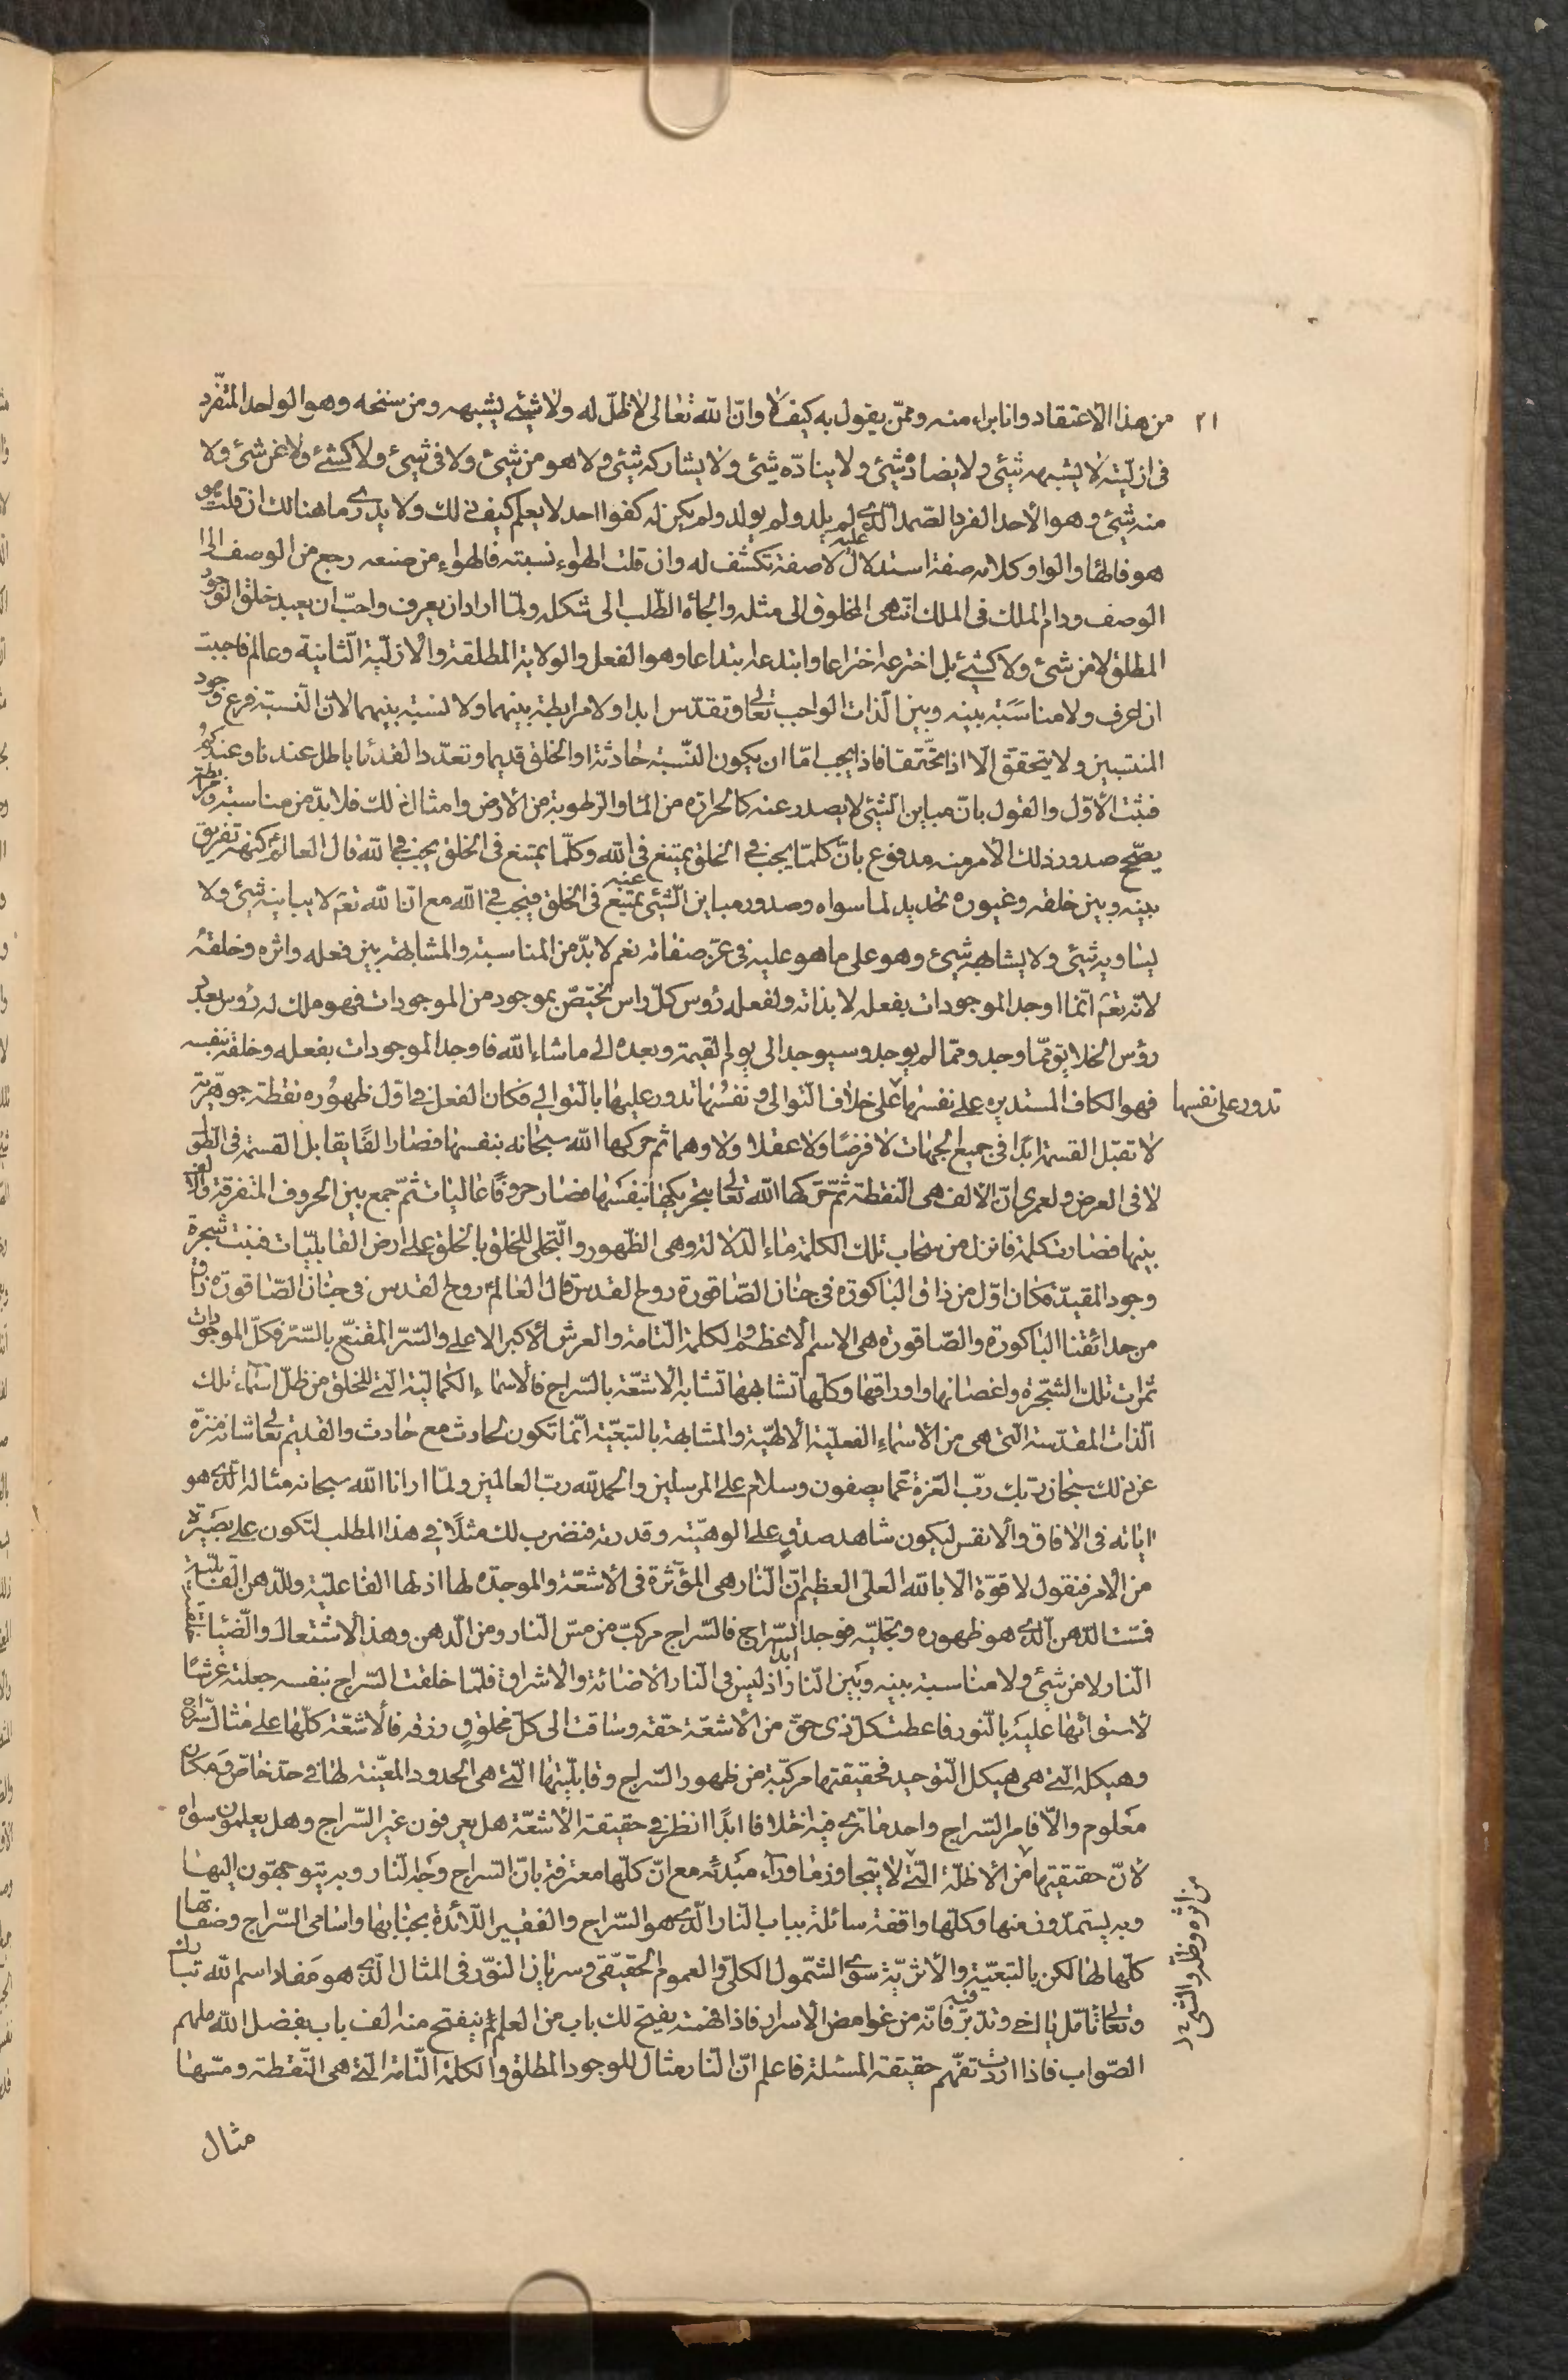 ٢١
من هذا الاعتقاد وانا براء منه وممن يقول به كيف لا وان الله تعالى لا ظل له ولا شيئ يشبهه ومن سنخه وهو الواحد المتفرد
فى ازليته لا يشبهه شيئ ولا يضاده شيئ ولا يناده شيئ ولا يشاركه شيئ ولا هو من شيئ ولا فى شيئ ولا كشيئ ولا عن شيئ ولا
منه شيئ وهو الأحد الفرد الصمد الذى لم يلد ولم يولد ولم يكن له كفوا احد لا يعلم كيف ذلك ولا يدرى ما هنالك ان قلت هو
هو فالهاء والواو كلامه صفة استدلال عليه لا صفة تكشف له وان قلت الهواء نسبته فالهواء من صنعه رجع من الوصف الى
الوصف ودام الملك فى الملك انتهى المخلوق الى مثله والجأه الطلب الى شكله ولما اراد ان يعرف واحب ان يعبد خلق الوجود
المطلق لا من شيئ ولا كشيئ بل اخترعه اختراعا وابتدعه ابتداعا وهو الفعل والولاية المطلقة والأزلية الثانية وعالم فاحببت
ان اعرف ولا مناسبة بينه وبين الذات الواجب تعالى وتقدس ابدا ولا مرابطة بينهما ولا نسبة بينهما لان النسبة فرع وجود
المنتسبين ولا يتحقق الا اذا تحققا فاذا يجب اما ان يكون النسبة حادثة او الخلق قديما وتعدد القدماء باطل عندنا وعندكم
فثبت الأول والقول بان مباين الشيئ لا يصدر عنه كالحرارة من الماء والرطوبة من الأرض وامثال ذلك فلابد من مناسبة ومرابطة
يصح صدور ذلك الأمر منه مدفوع بان كلما يجب فى الخلق يمتنع فى الله وكلما يمتنع فى الخلق يجب فى الله قال العالم كنهه تفريق
بينه وبين خلقه وغيوره تحديد لما سواه وصدور مباين الشيئ عنه يمتنع فى الخلق فيجب فى الله مع ان الله تعم لا يباينه شيئ ولا
يساويه شيئ ولا يشابهه شيئ وهو على ما هو عليه فى عز صفاته نعم لا بد من المناسبة والمشابهة بين فعله واثره وخلقه
لانه تعم انما اوجد الموجودات بفعله لا بذاته ولفعله رؤس كل راس تختص بموجود من الموجودات فهو ملك له رؤس بعدد
رؤس الخلايق مما وجد ومما لم يوجد وسيوجد الى يوم القيمة وبعده الى ما شاء الله فاوجد الموجودات بفعله وخلقه بنفسه
فهو الكاف المستديره على نفسها على خلاف التوالى ونفسها تدور عليها بالتوالي فكان الفعل فى اول ظهوره نقطة جوهرية
تدور على نفسها
لا تقبل القسمة ابدا فى جميع الجهات لا فرضا ولا عقلا ولا وهما ثم حركها الله سبحانه بنفسها فصار الفا يقابل القسمة فى الطول
لا فى العرض ولعمرى ان الالف هى النقطة ثم حركها الله تعالى بتحريكها بنفسها فصار حروفا عاليات ثم جمع بين الحروف المتفرقة والف
بينها فصارت كلمة فانزل من سحاب تلك الكلمة ماء الدلالة وهى الظهور والتجلى للخلق بالخلق على ارض القابليات فنبت شجرة
وجود المقيد فكان اول من ذاق الباكورة فى جنان الصاقورة روح القدس قال العالم روح القدس فى جنان الصاقورة ذاق
من حدائقنا الباكورة والصاقورة هى الاسم الأعظم والكلمة التامة والعرش الأكبر الاعلى والسر المقنع بالستر فكل الموجودات
ثمرات تلك الشجرة واغصانها واوراقها وكلها تشابهها تشابه الأشعة بالسراج فالأسماء الكمالية التى للخلق من ظل اسماء تلك
الذات المقدسة التى هى من الأسماء الفعلية الألهية والمشابهة بالتبعية انما تكون لحادث مع حادث والقديم تعالى شانه منزه
عن ذلك سبحان ربك رب العزة عما يصفون وسلام على المرسلين والحمد لله رب العالمين ولما ارانا الله سبحانه مثاله الذى هو
اياته فى الآفاق والأنفس ليكون شاهد صدق على الوهيته وقدرته فنضرب لك مثلا فى هذا المطلب لتكون على بصيرة
من الامر فنقول لا قوة الا بالله العلى العظيم ان النار هى المؤثرة فى الأشعة والموجدة لها اذ لها الفاعلية وللدهن القابلية
فمست الدهن الذى هو ظهوره وتجليه فوجد السراج فالسراج مركب من مس النار ومن الدهن وهذ الاشتعال والضياء
النار لا من شيئ ولا مناسبة بينه وبين النار ابدا اذ ليس فى النار الاضائة والاشراق فلما خلقت السراج بنفسه جعلته عرشا
لاستوائها عليه بالنور فاعطت كل ذى حق من الأشعة حقه وساقت الى كل مخلوق رزقه فالأشعة كلها على مثال السراج
وهيكله التى هى هيكل التوحيد فحقيقتها مركبة من ظهور السراج وقابليتها التى هى الحدود المعينه لها فى حد خاص ومكان
معلوم والا فامر السراج واحد ما ترى فيه اختلافا ابدا انظر فى حقيقة الأشعة هل يعرفون غير السراج وهل يعلمون سواه
لأن حقيقتها من الأظلة التى لا يتجاوز ما وراء مبدئه مع ان كلها معترفة بان السراج وجه النار وبه يتوجهون اليها
من اثره وظله والشيئ
وبه يستمدون منها وكلها واقفة سائلة بباب النار الذى هو السراج والفقير اللائدة بجنابها واسامى السراج وصفاتها
كلها لها لكن بالتبعية والأثرية سوى الشمول الكلى والعموم الحقيقى وسريان النور فى المثال الذى هو مفاد اسم الله تبارك
وتعالى تامل يا اخى وتدبر فيه فانه من غوامض الأسرار فاذا فهمته يفتح لك باب من العلم ينفتح منه الف باب بفضل الله ملهم
الصواب فاذا اردت تفهم حقيقة المسئلة فاعلم ان النار مثال للوجود المطلق والكلمة التامة التى هى النقطة ومسها
مثال